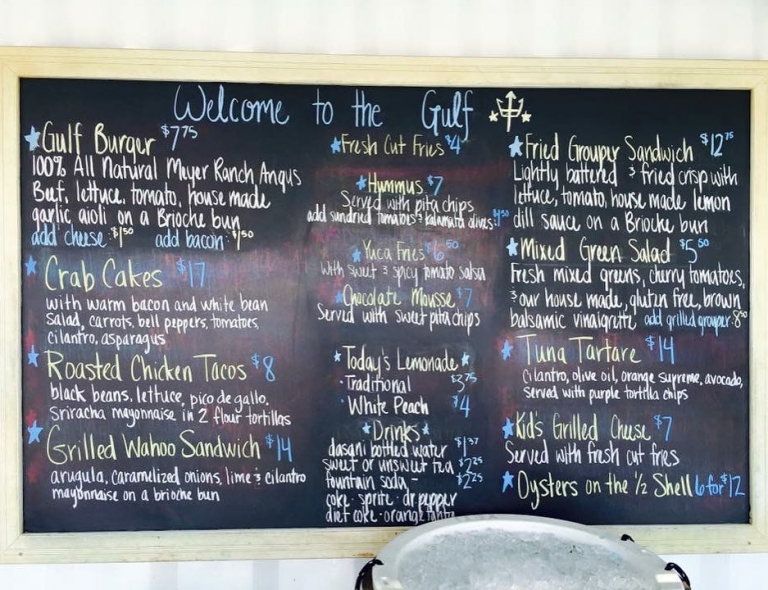 Welcome to the Gulf
Gulf Burger $7.75
100% All Natural Meyer Ranch Angus
Beef, lettuce, tomato, house made
garlic aioli on a Brioche bun
add cheese $1.50 add bacon $1.50
Crab Cakes $17
with warm bacon and white bean
salad, carrots, bell peppers, tomatoes,
cilantro, asparagus
Roasted Chicken Tacos $8
black beans, lettuce, pico de gallo,
Sriracha mayonnaise in 2 flour tortillas
Grilled Wahoo Sandwich $14
arugula, caramelized onions, lime & cilantro
mayonnaise on a brioche bun
Fresh Cut Fries $4
Hummus $7
Served with pita chips
add sundried tomatoes & kalamata olives $1.50
Yuca Fries $6.50
with sweet & spicy tomato salsa
Chocolate Mousse $7
Served with sweet pita chips
Today's Lemonade
Traditional $3.75
White Peach $4
Drinks
dasani bottled water $1.37
sweet or unsweet tea $2.25
fountain soda - $2.25
coke · sprite · dr pepper
diet coke · orange fanta
Fried Grouper Sandwich $12.75
Lightly battered & fried crisp with
lettuce, tomato, house made lemon
dill sauce on a Brioche bun
Mixed Green Salad $5.50
Fresh mixed greens, cherry tomatoes,
& our house made, gluten free, brown
balsamic vinaigrette add grilled grouper 8.50
Tuna Tartare $14
Cilantro, olive oil, orange supreme, avocado,
served with purple tortilla chips
Kid's Grilled Cheese $7
Served with fresh cut fries
Oysters on the 1/2 Shell 6 for $12